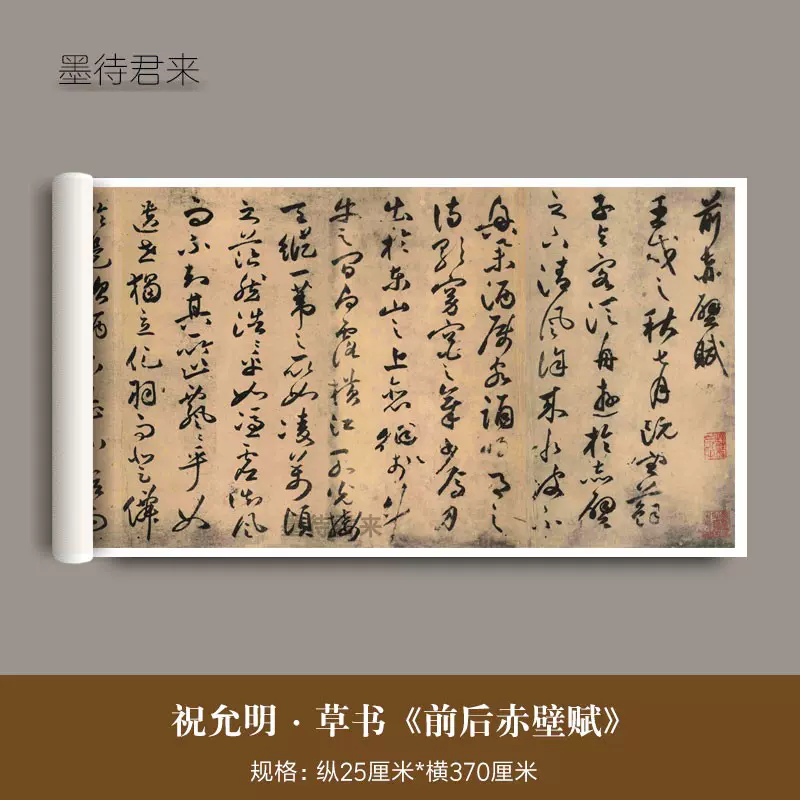 墨待君来
前赤壁賦
壬戌之秋七月既望蘇
子与客泛舟遊於赤壁
之下清風徐来水波不
興举酒属客誦明月之
诗歌窈窕之章少焉月
出於東山之上徘徊於斗
牛之間白露横江水光接
天縱一葦之所如凌萬頃
之茫然浩〻乎如馮虚御風
而不知其所止飄〻乎如
遺世獨立化羽而登僊
墨待君来
祝允明·草书《前后赤壁赋》
规格：纵25厘米*横370厘米